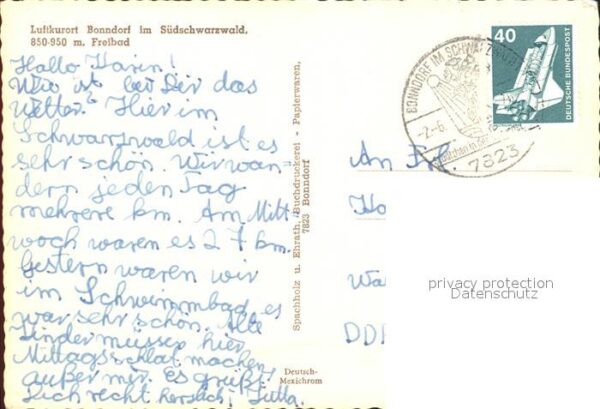 Luftkurort Bonndorf im Südschwarzwald,
850-950 m. Freibad
Hallo Karin!
Wie ist bei Dir das
Wetter? Hier im
Schwarzwald ist es
sehr schön. Wir wan-
dern jeden Tag
mehrere km. Am Mitt-
woch waren es 27 km.
Gestern waren wir
im Schwimmbad, es
war sehr schön. Alle
Kinder müssen hier
Mittagsschlaf machen,
außer mir. Es grüßt
Dich recht herzlich Jutta.
Spachholz u. Ehrath, Buchdruckerei - Papierwaren,
7823 Bonndorf
Deutsch-
Mexichrom
BONNDORF IM SCHWARZWALD
-2.-6.
7823
40
DEUTSCHE BUNDESPOST
An Frl.
Ho
Wa
DDR
privacy protection
Datenschutz